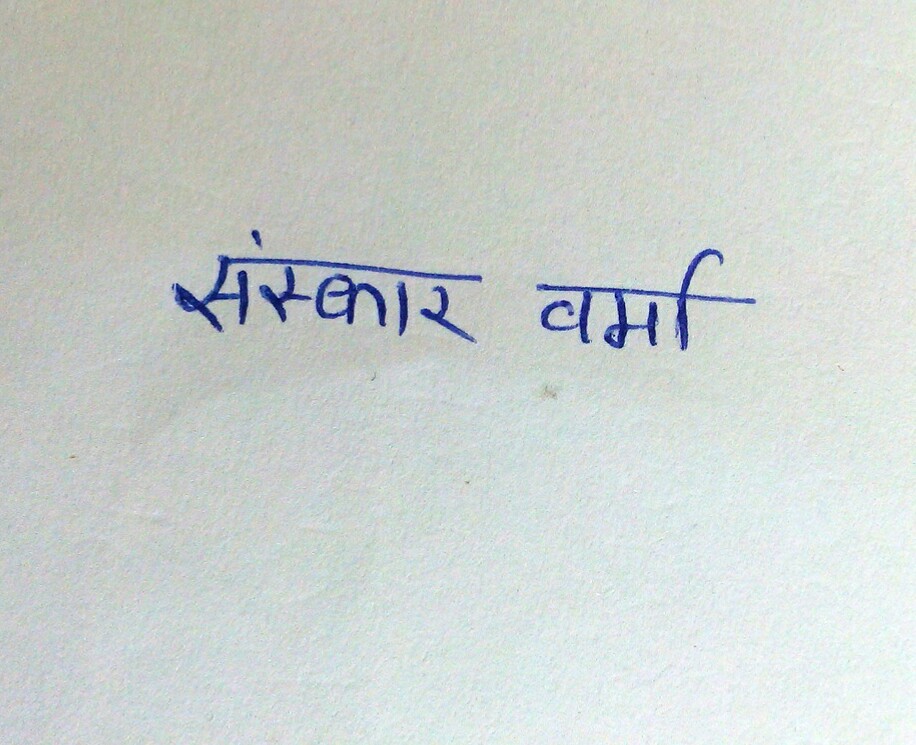 संस्कार वर्मा